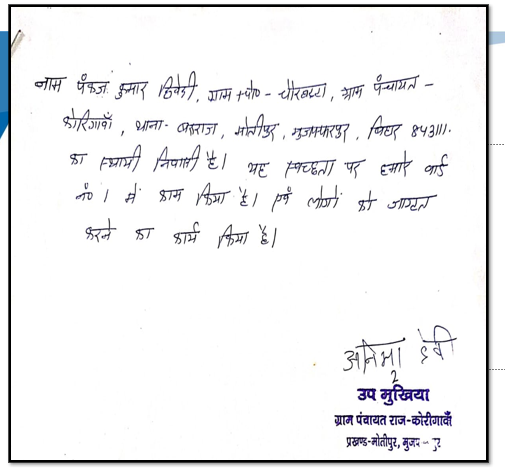 नाम पंकज कुमार द्विवेदी, ग्राम+पो०- चौरघटा, ग्राम पंचायत -
कोरिगावाँ, थाना- बरूराज, मोतीपुर, मुजफ्फरपुर, बिहार 843111.
का स्थायी निवासी है। यह स्वच्छता पर हमारे वार्ड
नं० 1 में काम किया है। एवं लोगों को जागृत
करने का कार्य किया है।
देवी
उप मुखिया
ग्राम पंचायत राज-कोरीगावाँ
प्रखण्ड-मोतीपुर,